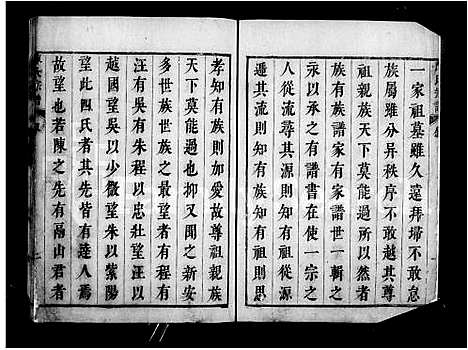 一家祖墓雖久遠拜埽不敢怠
族屬雖分异秩序不敢越其尊
祖親族天下莫能過所以然者
族有族譜家有家世一輯之
永以之有譜書在使一宗之
人從流尋其源則知有從源
遁其流則知有族知有祖則思
孝知有族則加愛故尊祖親族
天下莫能過也抑又聞之新安
多世族世族之最望者有程有
汪有吳有朱程以忠壯望汪以
越國望吳以少微望朱以紫陽
望此四氏者其先皆有達人焉
故望也若陳之先有鬲山君者